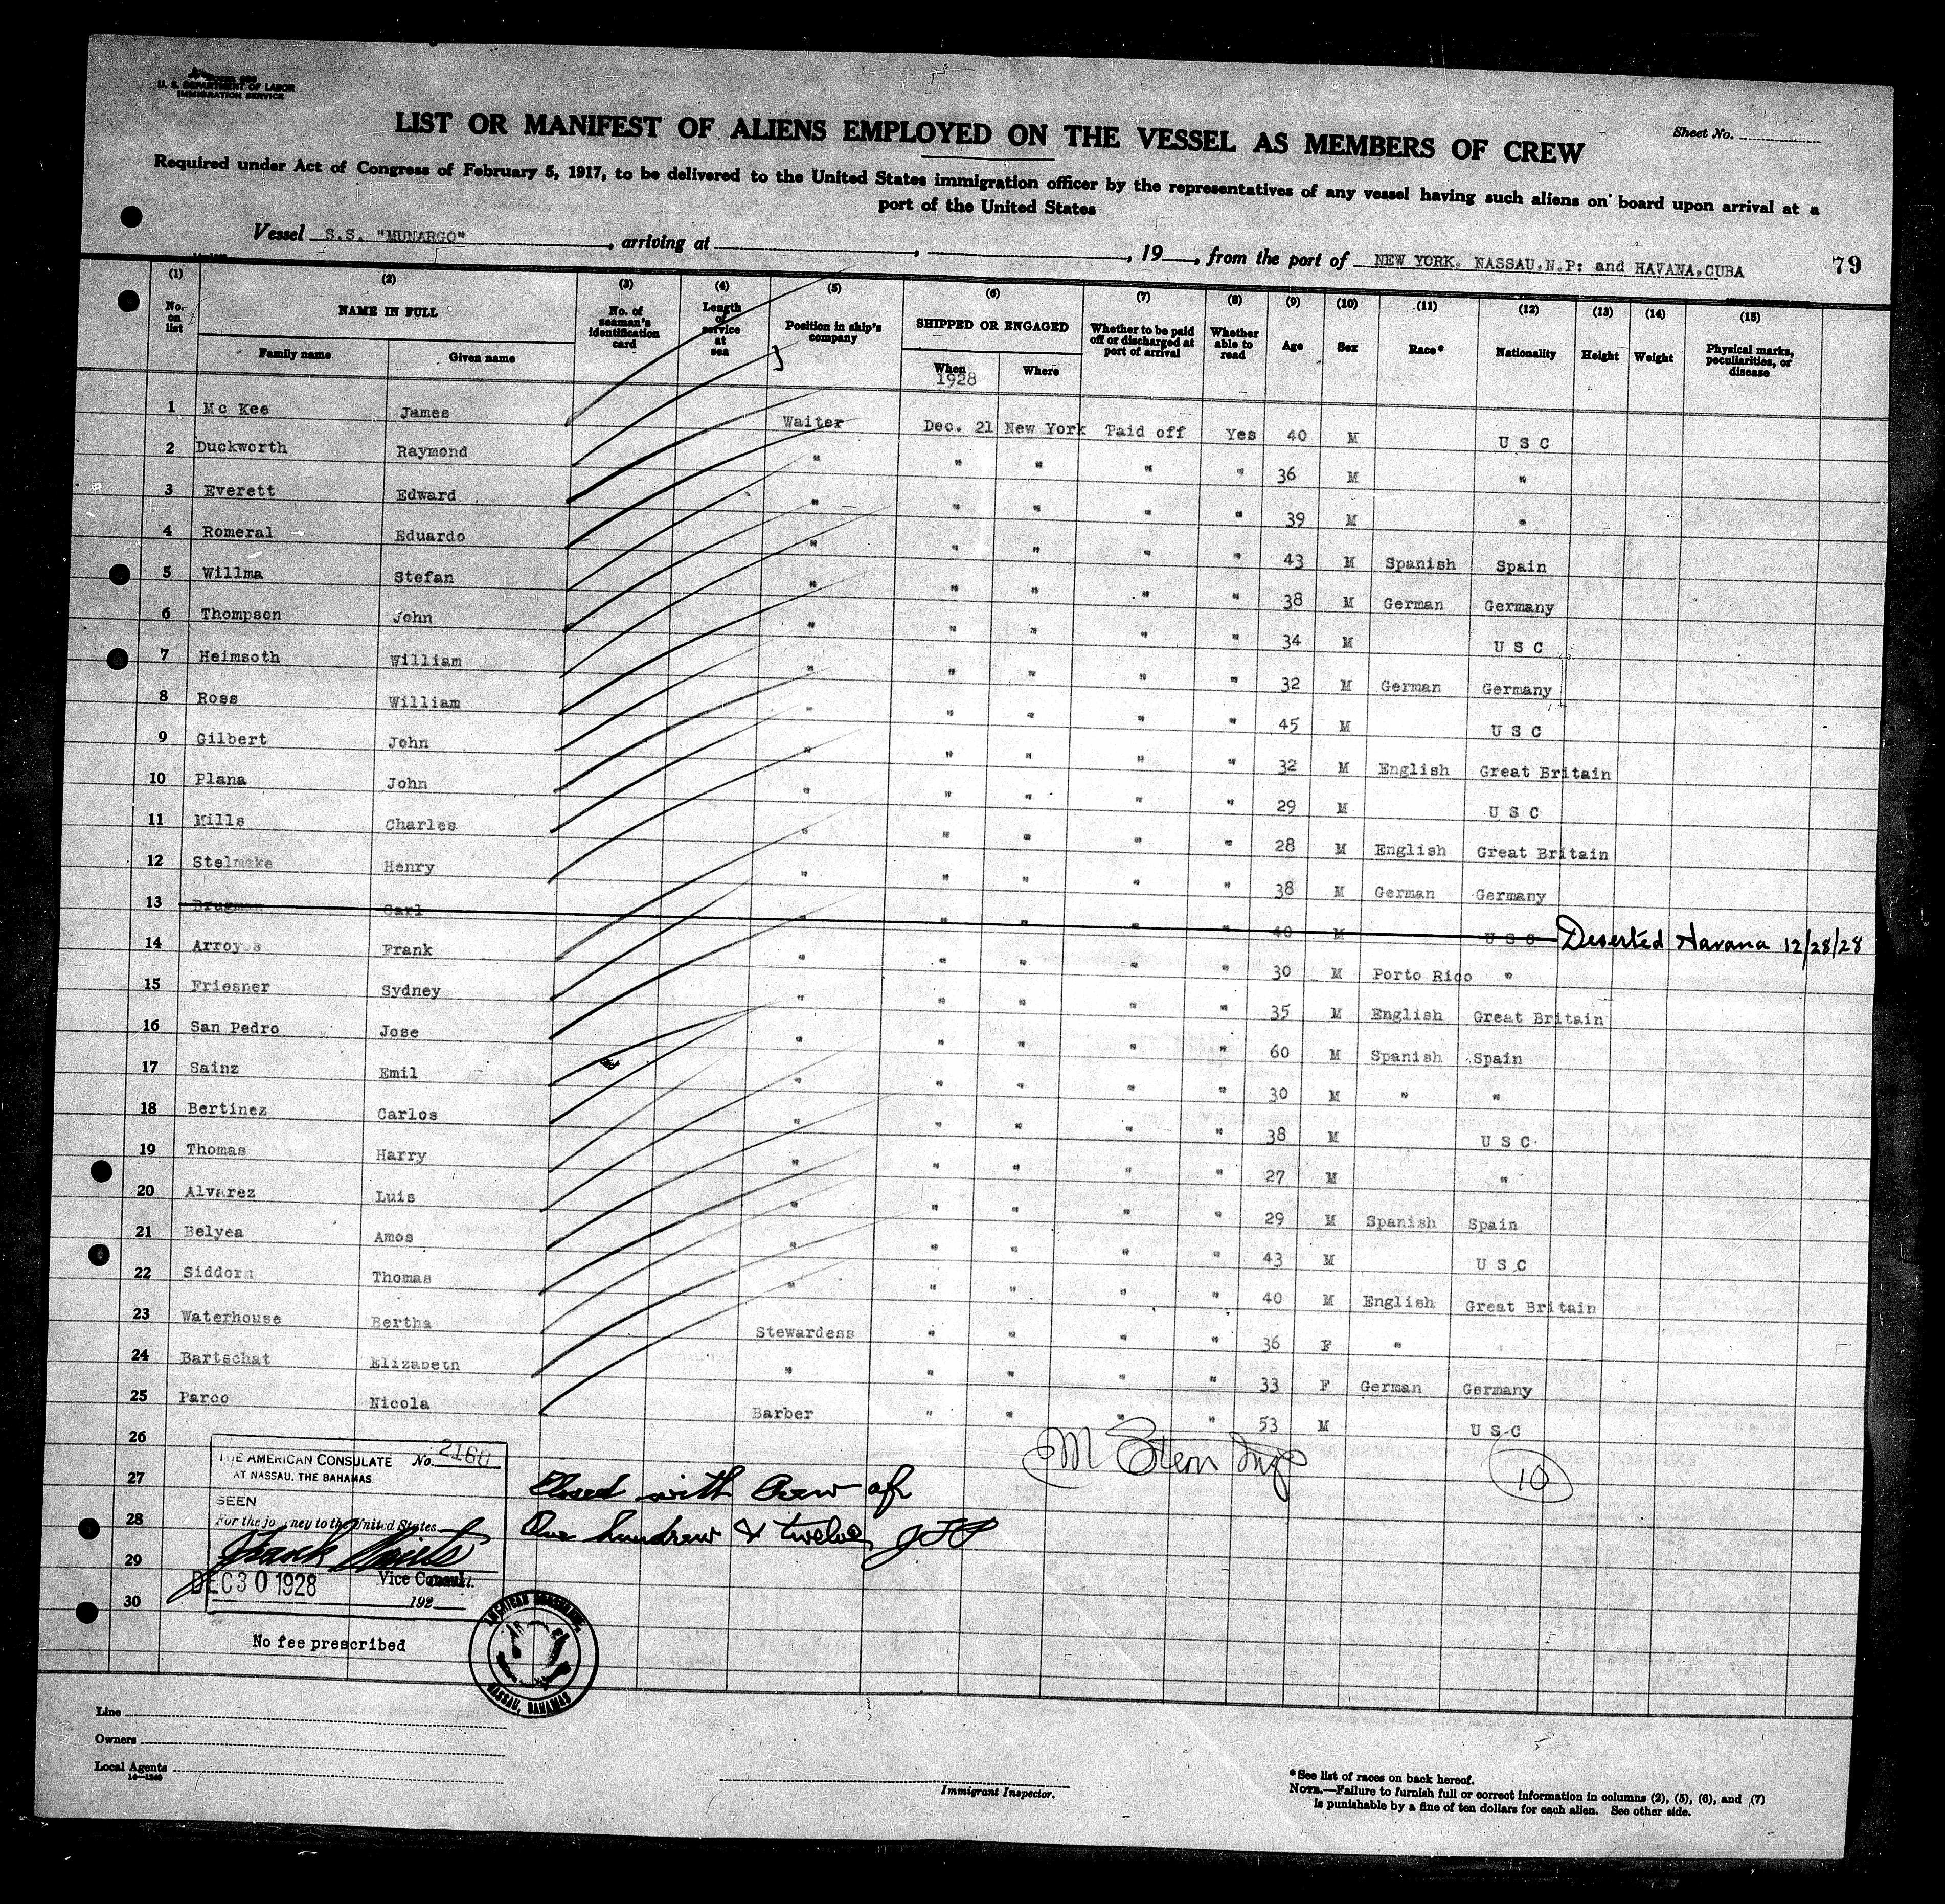 U. S. DEPARTMENT OF LABOR
IMMIGRATION SERVICE
LIST OR MANIFEST OF ALIENS EMPLOYED ON THE VESSEL AS MEMBERS OF CREW
Sheet No.
Required under Act of Congress of February 5, 1917, to be delivered to the United States immigration officer by the representatives of any vessel having such aliens on board upon arrival at a
port of the United States
Vessel S.S. "MUNARGO", arriving at , , 19 , from the port of NEW YORK. NASSAU.N.P: and HAVANA,CUBA 79
(1) (2) (3) (4) (5) (6) (7) (8) (9) (10) (11) (12) (13) (14) (15)
No. on list NAME IN FULL Family name Given name No. of seaman's identification card Length of service at sea Position in ship's company SHIPPED OR ENGAGED When Where Whether to be paid off or discharged at port of arrival Whether able to read Age Sex Race* Nationality Height Weight Physical marks, peculiarities, or disease
1928
1 Mc Kee James Waiter Dec. 21 New York Paid off Yes 40 M U S C
2 Duckworth Raymond " " " " " 36 M "
3 Everett Edward " " " " " 39 M "
4 Romeral Eduardo " " " " " 43 M Spanish Spain
5 Willma Stefan " " " " " 38 M German Germany
6 Thompson John " " " " " 34 M U S C
7 Heimsoth William " " " " " 32 M German Germany
8 Ross William " " " " " 45 M U S C
9 Gilbert John " " " " " 32 M English Great Britain
10 Plana John " " " " " 29 M U S C
11 Mills Charles " " " " " 28 M English Great Britain
12 Stelmeke Henry " " " " " 38 M German Germany
13 Brugman Carl " " " " 40 M U S C Deserted Havana 12/28/28
14 Arroyos Frank " " " " " 30 M Porto Rico "
15 Friesner Sydney " " " " " 35 M English Great Britain
16 San Pedro Jose " " " " " 60 M Spanish Spain
17 Sainz Emil " " " " " 30 M " "
18 Bertinez Carlos " " " " " 38 M U S C
19 Thomas Harry " " " " " 27 M "
20 Alvarez Luis " " " " " 29 M Spanish Spain
21 Belyea Amos " " " " " 43 M U S C
22 Siddorn Thomas " " " " " 40 M English Great Britain
23 Waterhouse Bertha Stewardess " " " " 36 F "
24 Bartschat Elizabeth " " " " " 33 F German Germany
25 Parco Nicola Barber " " " " 53 M U S C
26
27
28
29
30
THE AMERICAN CONSULATE No. 2160
AT NASSAU, THE BAHAMAS
SEEN
For the journey to the United States
DEC 30 1928 Vice Consul.
192
No fee prescribed
AMERICAN CONSULATE
NASSAU, BAHAMAS
M Stern
10
Closed with Crew of
One hundred & twelve
Line
Owners
Local Agents
14—1240
Immigrant Inspector.
*See list of races on back hereof.
NOTE.—Failure to furnish full or correct information in columns (2), (5), (6), and (7)
is punishable by a fine of ten dollars for each alien. See other side.